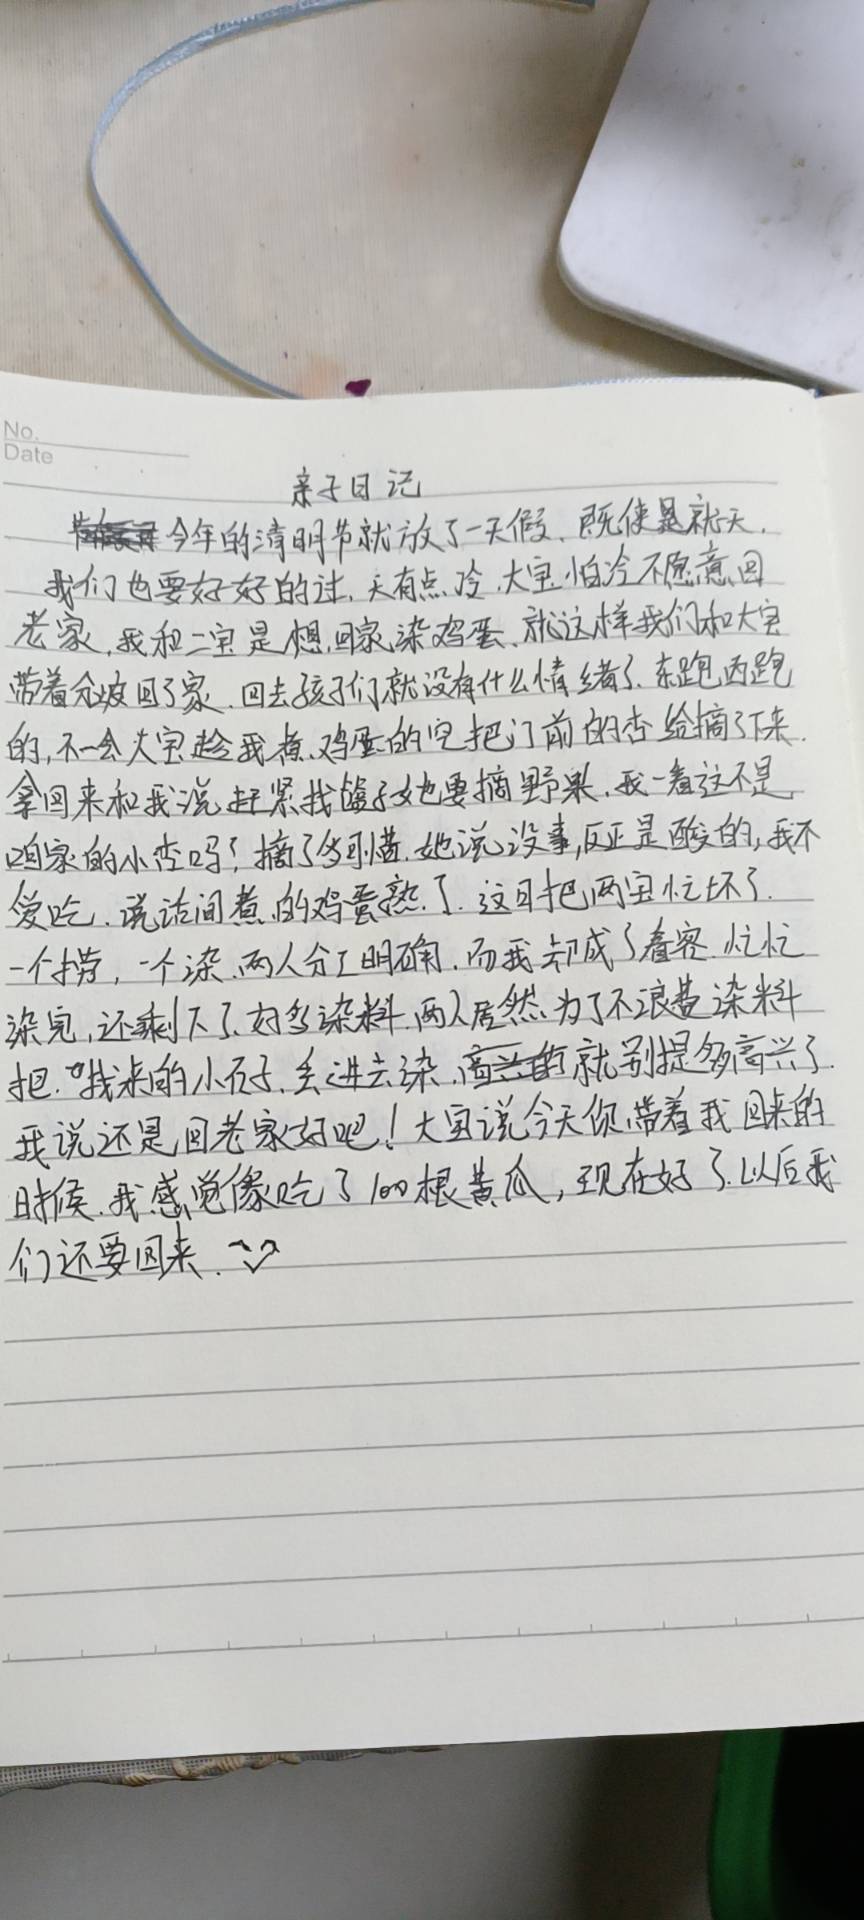 No.
Date
亲子日记
今年的清明节就放了一天假、既使是就天,
我们也要好好的过,天有点冷,大宝怕冷不愿意回
老家,我和二宝是想回家染鸡蛋、就这样我们和大宝
带着分歧回了家.回去孩子们就没有什么情绪了.东跑西跑
的,不一会大宝趁我煮鸡蛋的空把门前的杏给摘了下来.
拿回来和我说赶紧找篮子她要摘野果.我一看这不是
咱家的小杏吗?摘了多可惜.她说没事,反正是酸的,我不
爱吃.说话间煮的鸡蛋熟了.这可把两宝忙坏了.
一个捞,一个染.两人分工明确.而我却成了看客.忙忙
染完,还剩下了好多染料.两人居然为了不浪费染料
把找来的小石子.丢进去染.就别提多高兴了.
我说还是回老家好吧!大宝说今天你带着我回来的
时候.我感觉像吃了100根黄瓜,现在好了.以后我
们还要回来.